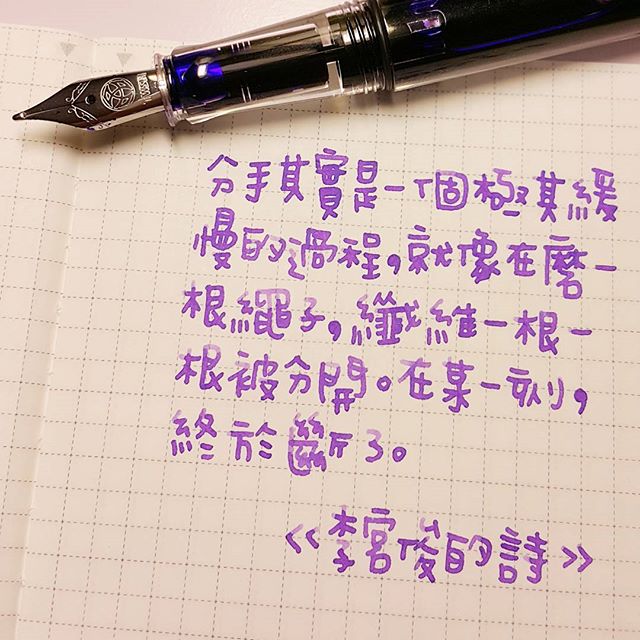 分手其實是一個極其緩
慢的過程,就像在磨一
根繩子,纖維一根一
根被分開。在某一刻,
終於斷了。
《李宮俊的詩》